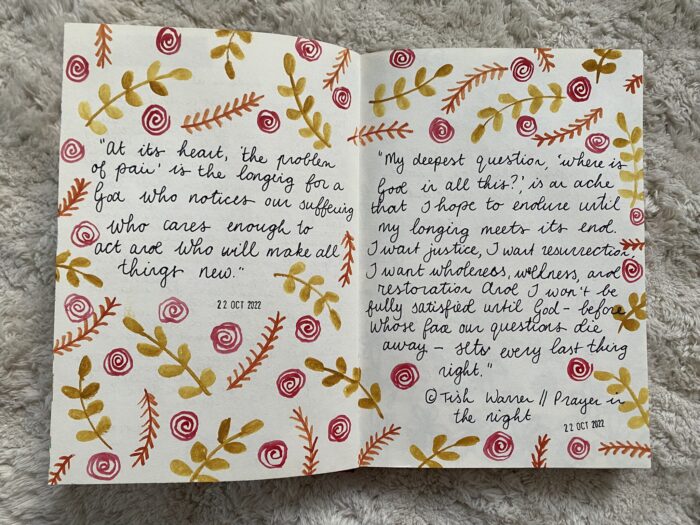 "At its heart, 'the problem
of pain' is the longing for a
God who notices our suffering
who cares enough to
act and who will make all
things new."
22 OCT 2022
"My deepest question, 'where is
God in all this?,' is an ache
that I hope to endure until
my longing meets its end.
I want justice, I want resurrection,
I want wholeness, wellness, and
restoration and I won't be
fully satisfied until God - before
whose face our questions die
away - sets every last thing
right."
© Tish Warren // Prayer in
the night
22 OCT 2022